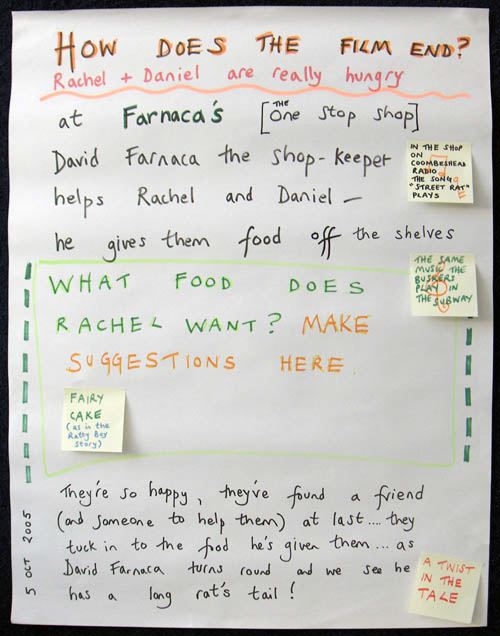 HOW DOES THE FILM END?
Rachel + Daniel are really hungry
at Farnaca's [THE One Stop Shop]
David Farnaca the shop-keeper
helps Rachel and Daniel –
he gives them food off the shelves
IN THE SHOP
ON
COOMBESHEAD
RADIO
THE SONG
"STREET RAT"
PLAYS
THE SAME
MUSIC THE
BUSKERS
PLAY IN
THE SUBWAY
WHAT FOOD DOES
RACHEL WANT? MAKE
SUGGESTIONS HERE.
FAIRY
CAKE
(as in the
Ratty Boy
story)
They're so happy, they've found a friend
(and someone to help them) at last.... they
tuck in to the food he's given them... as
David Farnaca turns round and we see he
has a long rat's tail!
A TWIST
IN THE
TALE
5 OCT 2005